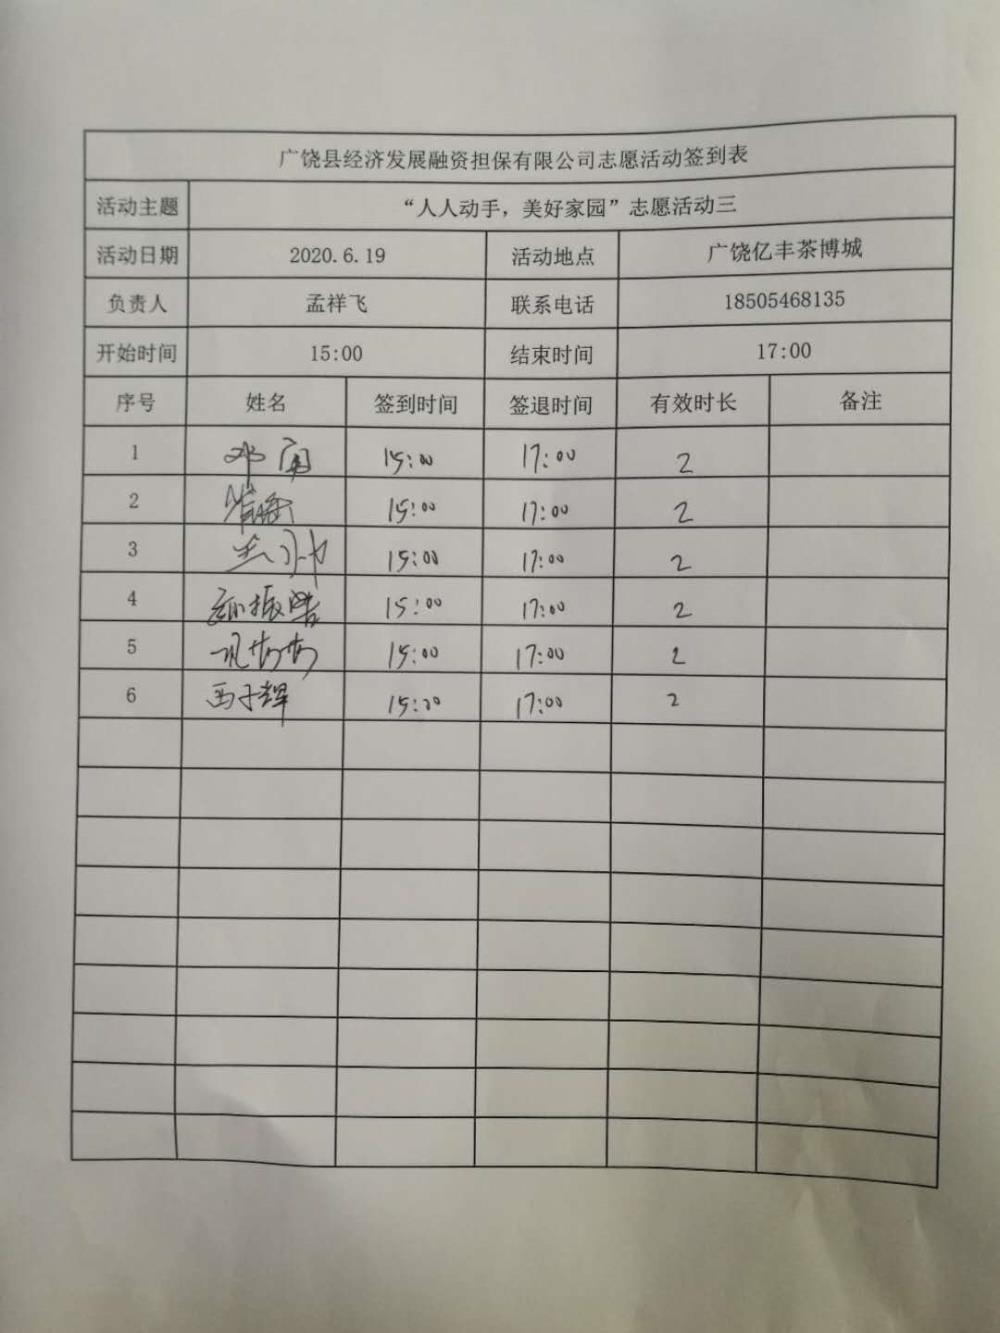 广饶县经济发展融资担保有限公司志愿活动签到表
活动主题 “人人动手，美好家园”志愿活动三
活动日期 2020.6.19 活动地点 广饶亿丰茶博城
负责人 孟祥飞 联系电话 18505468135
开始时间 15:00 结束时间 17:00
序号 姓名 签到时间 签退时间 有效时长 备注
1 15:00 17:00 2
2 15:00 17:00 2
3 15:00 17:00 2
4 15:00 17:00 2
5 15:00 17:00 2
6 17:00 2